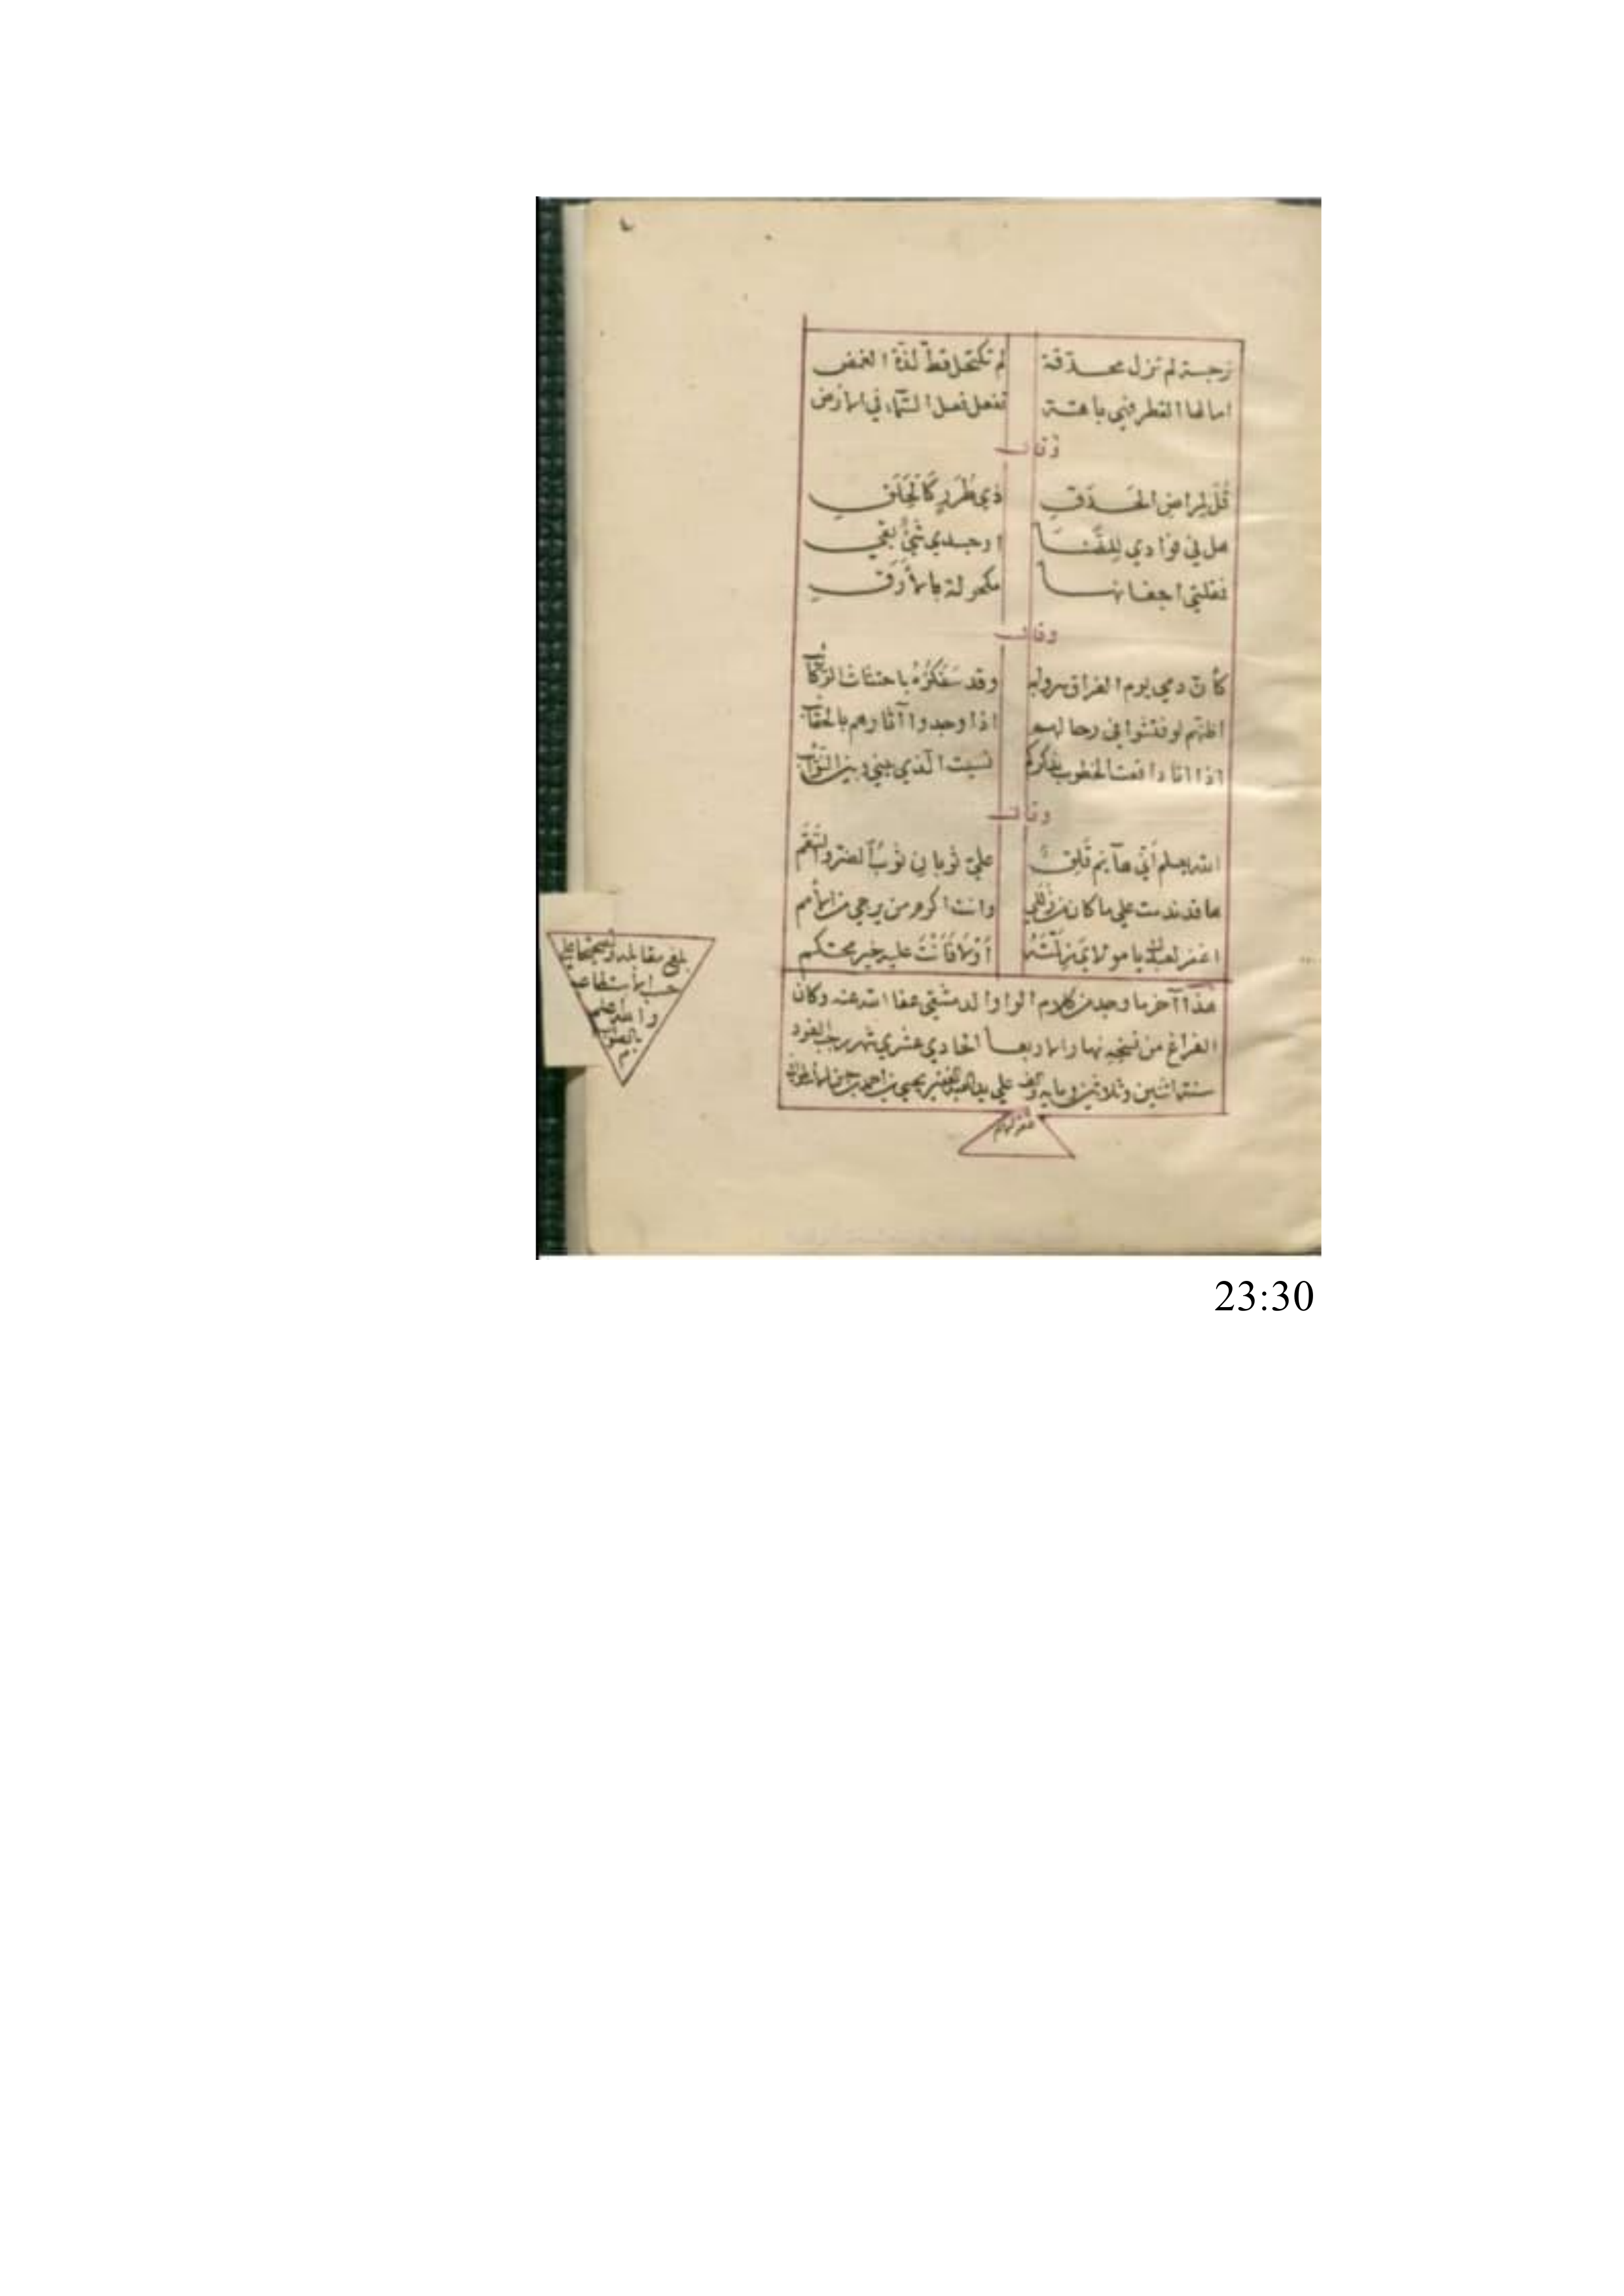 نرجسة لم تزل محدّقة لم تكتحل قطّ لذّة الغمض
امالها القطر فهي باهتة تفعل فعل السّماء في الارض
وقال
قُل لِمراض الحَدَقِ ذي طُرَرٍ كَالحَلَقِ
هل في فوادي للضَّنا اوجسدي شيٌ بقي
فمقلتي اجفانها مكحولة بالأَرَقِ
وقال
كأن دمي يوم الفراق وقد سَفَكُوهُ باحتثاث الرّكائب
اظنهم لو فتشوا في رحالهم اذا وجدوا آثارهم بالحقائب
اذا انا دافعت الخطوب بذكركم نسيت الّذي بيني وبين النّوائب
وقال
الله يعلم أَنّي هآئِم قَلِقٌ عليّ ثوبان ثوبُ الضر والسَّقَم
ها قد ندمت على ما كان من زللي وانت اكرم من يرجى من الأمم
اغفر لعبدك يا مولاي زَلَّتَهُ أَوْلا فَأَنْتَ عليه خير محتكم
هذا آخر ما وجد من كلام الواوا الدمشقي عفا الله عنه وكان
الفراغ من نسخه نهار الاربعا الحادي عشري شهر رجب الفرد
سنة اثنين وثلاثين ومايه والف علي يد العبد الفقير يحيى بن احمد بن
غفر لهم
بلغ مقابلة وتصحيحا على
حسب الاستطاعة
والله اعلم
بالصواب
م
23:30